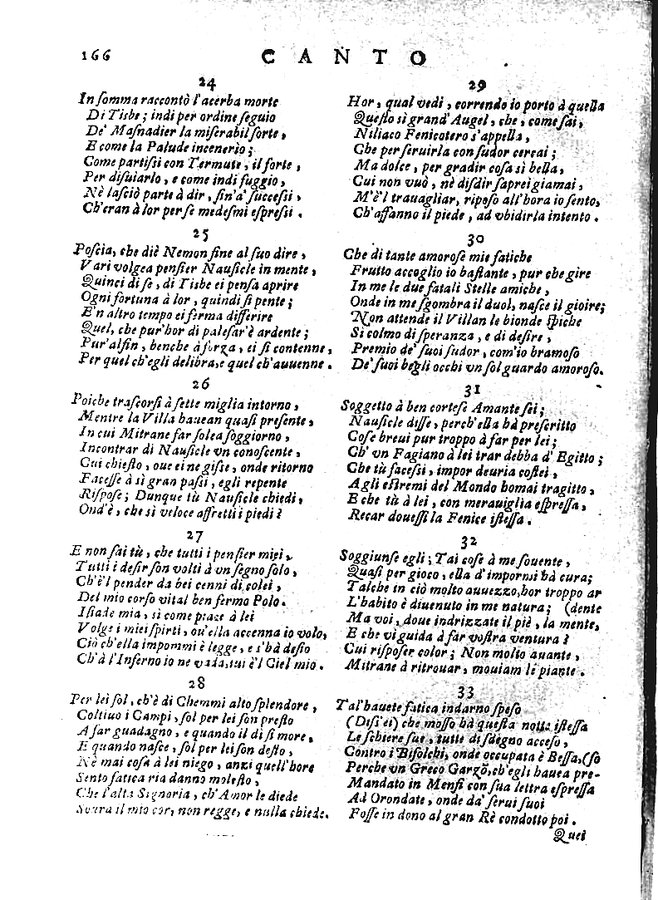 166
CANTO
24
In somma raccontò l'acerba morte
Di Tisbe; indi per ordine seguio
De' Masnadier la miserabil sorte,
E come la Palude incenerio;
Come partissi con Termute, il forte,
Per disuiarlo, e come indi fuggio,
Nè lasciò parte à dir, sin'a' successi,
Ch'eran à lor per se medesmi espressi.
25
Poscia, che diè Nemon fine al suo dire,
Vari volgea pensier Nausicle in mente,
Quinci di se, di Tisbe ei pensa aprire
Ogni fortuna à lor, quindi si pente;
E'n altro tempo ei ferma differire
Quel, che pur'hor di palesar'è ardente;
Pur'alfin, benche à forza, ei si contenne,
Per quel ch'egli delibra, e quel ch'auuenne.
26
Poiche trascorsi à sette miglia intorno,
Mentre la Villa haueau quasi presente,
In cui Mitrane far solea soggiorno,
Incontrar di Nausicle vn conoscente,
Cui chiesto, oue ei ne gisse, onde ritorno
Facesse à sì gran passi, egli repente
Rispose; Dunque tù Nausicle chiedi,
Ond'è, che sì veloce affretti i piedi?
27
E non sai tù, che tutti i pensier miei,
Tutti i desir son volti à vn segno solo,
Ch'è'l pender da bei cenni di colei,
Del mio corso vital ben fermo Polo.
Isiade mia, sì come piace à lei
Volge i miei spirti, ou'ella accenna io volo,
Ciò ch'ella impommi è legge, e s'hà desio
Ch'à l'Inferno io ne vada, tui è'l Ciel mio.
28
Per lei sol, ch'è di Chemmi alto splendore,
Coltiuo i Campi, sol per lei son presto
A far guadagno, e quando il dì si more,
E quando nasce, sol per lei son desto,
Nè mai cosa à lei niego, anzi quell'hore
Sento fatica ria danno molesto,
Che l'alta Signoria, ch'Amor le diede
Soura il mio cor, non regge, e nulla chiede.
29
Hor, qual vedi, correndo io porto à quella
Questo sì grand'Augel, che, come sai,
Niliaco Fenicotero s'appella,
Che per seruirla con sudor cercai;
Ma dolce, per gradir cosa sì bella,
Cui non vuò, nè disdir saprei giamai,
M'è'l trauagliar, riposo all'hora io sento,
Ch'affanno il piede, ad vbidirla intento.
30
Che di tante amorose mie fatiche
Frutto accoglio io bastante, pur che gire
In me le due fatali Stelle amiche,
Onde in me sgombra il duol, nasce il gioire;
Non attende il Villan le bionde spiche
Sì colmo di speranza, e di desire,
Premio de' suoi sudor, com'io bramoso
De' suoi begli occhi vn sol guardo amoroso.
31
Soggetto à ben cortese Amante sei;
Nausicle disse, perch'ella hà prescritto
Cose breui pur troppo à far per lei;
Ch' vn Fagiano à lei trar debba d' Egitto;
Che tù facessi, impor deuria costei,
Agli estremi del Mondo homai tragitto,
E che tù à lei, con merauiglia espressa,
Recar douessi la Fenice istessa.
32
Soggiunse egli; Tai cose à me souente,
Quasi per gioco, ella d'impormi hà cura;
Talche in ciò molto auuezzo, hor troppo ar
L'habito è diuenuto in me natura; (dente
Ma voi, doue indrizzate il piè, la mente,
E che vi guida à far vostra ventura?
Cui risposer color; Non molto auante,
Mitrane à ritrouar, mouiam le piante.
33
Tal'hauete fatica indarno speso
(Diss'ei) che mosso hà questa notte istessa
Le schiere sue, tutte di sdegno acceso,
Contro i Bifolchi, onde occupata è Bessa, (so
Perche vn Greco Garzõ, ch'egli hauea pre-
Mandato in Menfi con sua lettra espressa
Ad Orondate, onde da' serui suoi
Fosse in dono al gran Rè condotto poi.
Quei